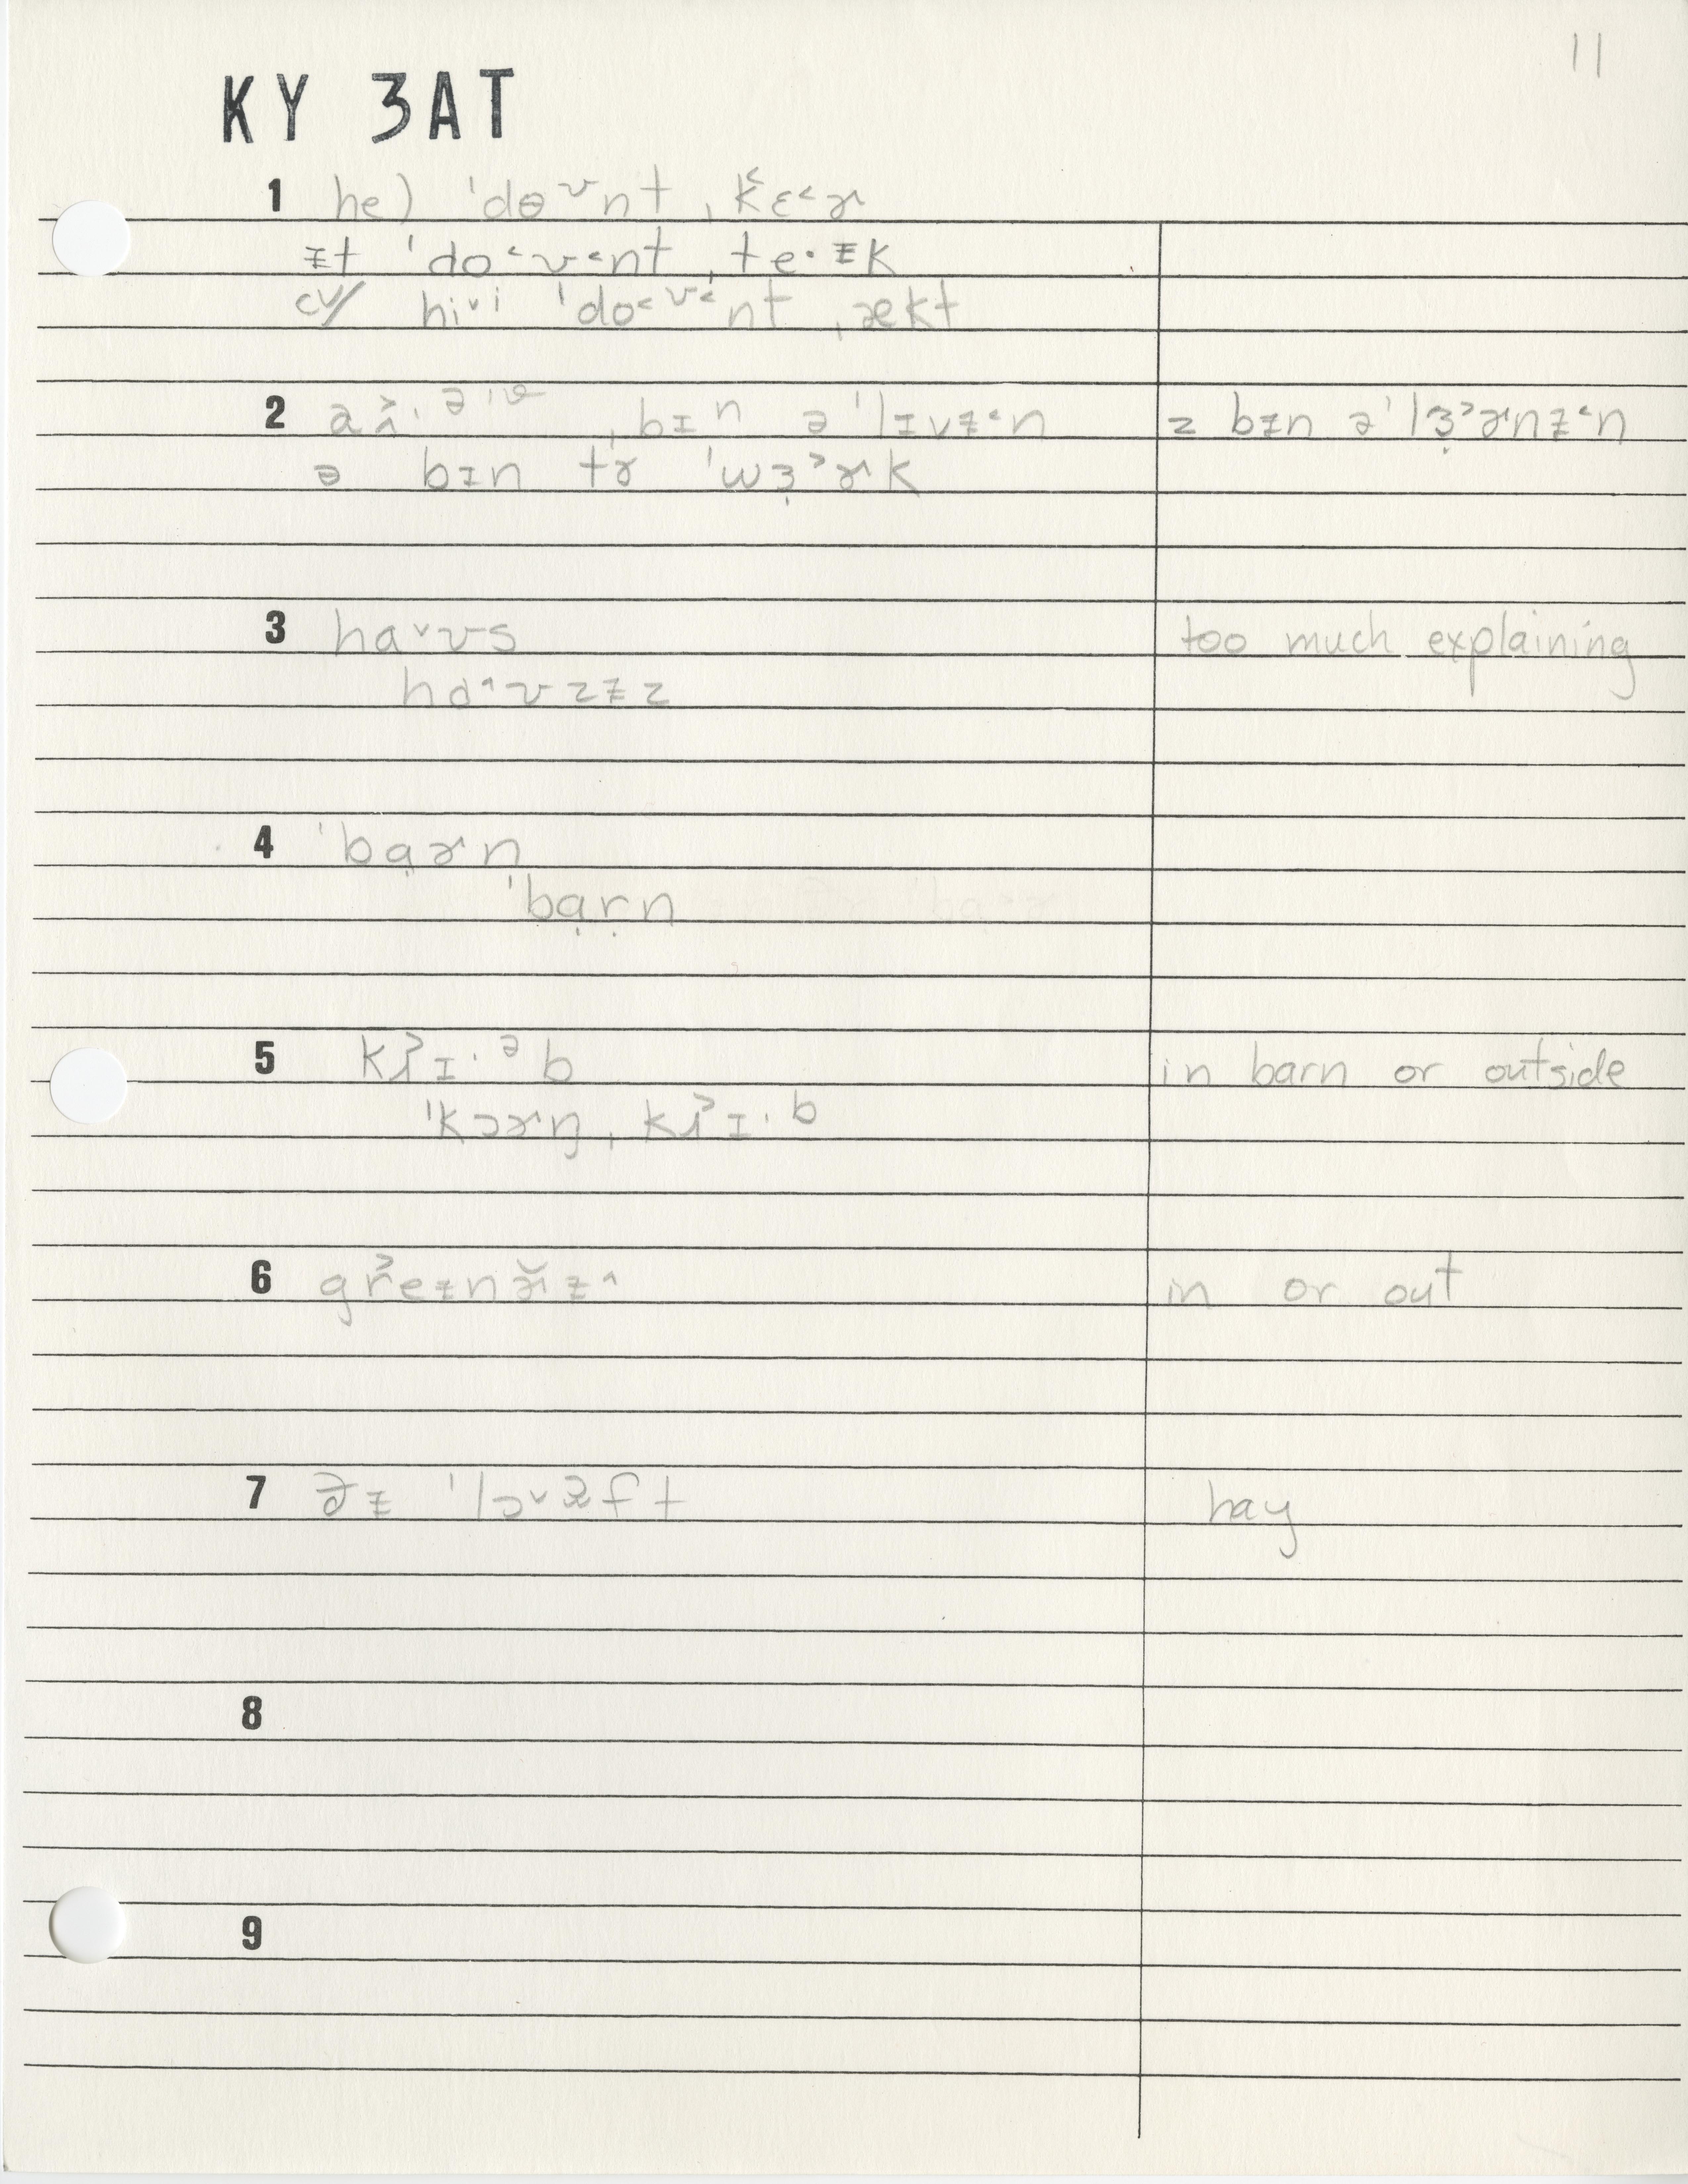 11
KY 3AT
1 he) ˈdɵ ᶹnt ˌk˂ɛ˂ɚ
ɪ̵t ˈdo˂ʊ˂nt ˌte·ɪ̵k
cv/ hi˅i ˈdo˂ʊ˂nt ˌækt
2 ˌbɪn ə ˈlɪvɪ̵˂n z bɪ̵n əˈlɜ̣˃ɚnɪ̵˂n
ə bɪn tɤ ˈwɜ̣˃ɚk
3 ha˅ʊs too much explaining
ha˄ʊzɪ̵z
4 ˈbạɚn
ˈbạṛn
5 kɪ·ᵊb in barn or outside
ˈkɔɚŋ ˌkɪ·b
6 gr˃eɪ̵nɚɪ̵z˄ in or out
7 ˈlɔ˅ft hay
8
9